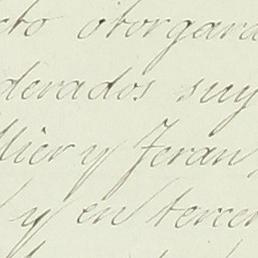 cto otorgara
derados suy
llier y Jeran
y en tercer